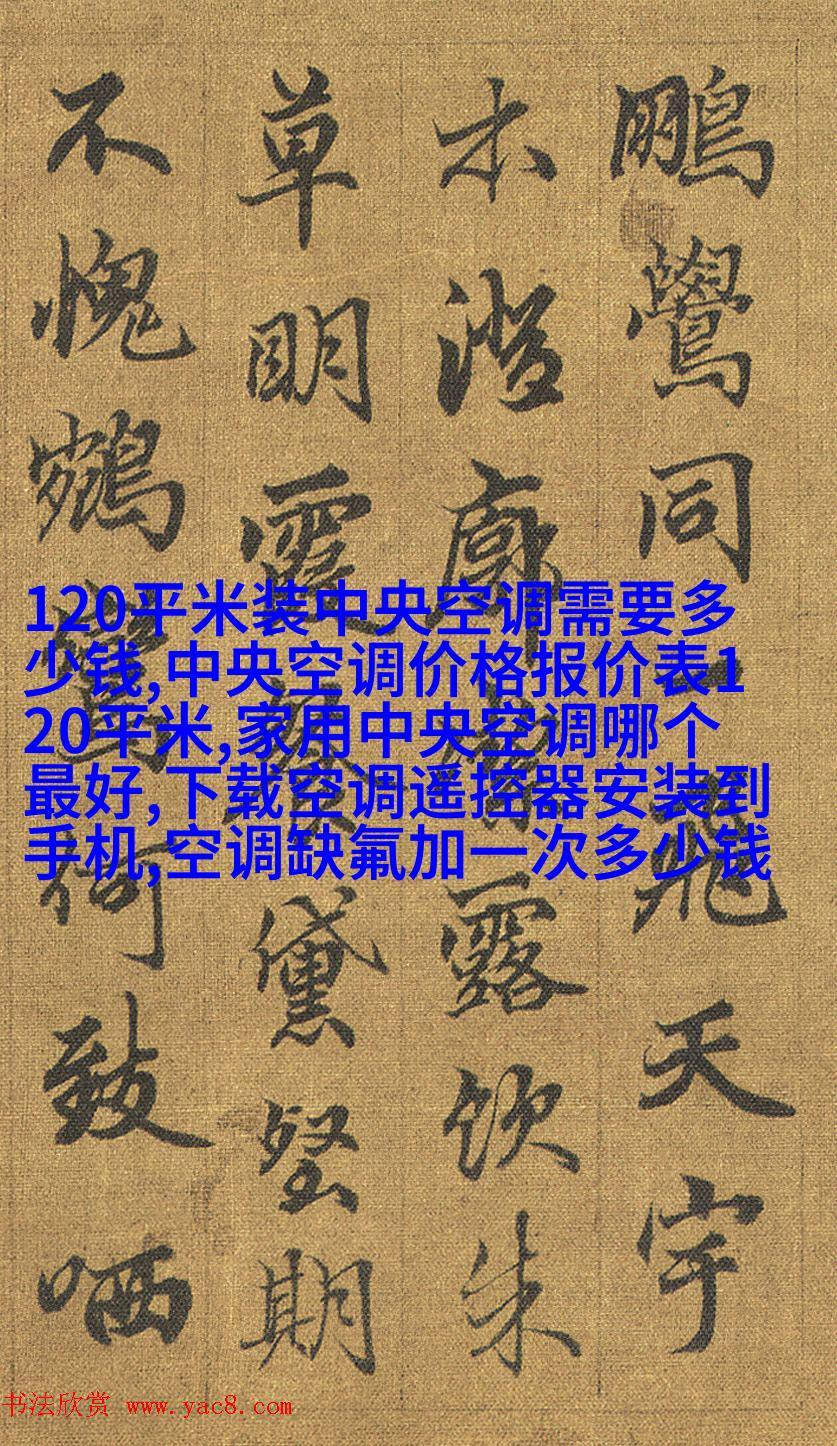 鵬鷽同一飛天宇
本澄廓露飲朱
草明霞黛堅期
不愧鶴何致哂
120平米装中央空调需要多
少钱,中央空调价格报价表1
20平米,家用中央空调哪个
最好,下载空调遥控器安装到
手机,空调缺氟加一次多少钱
书法欣赏 www.yac8.com